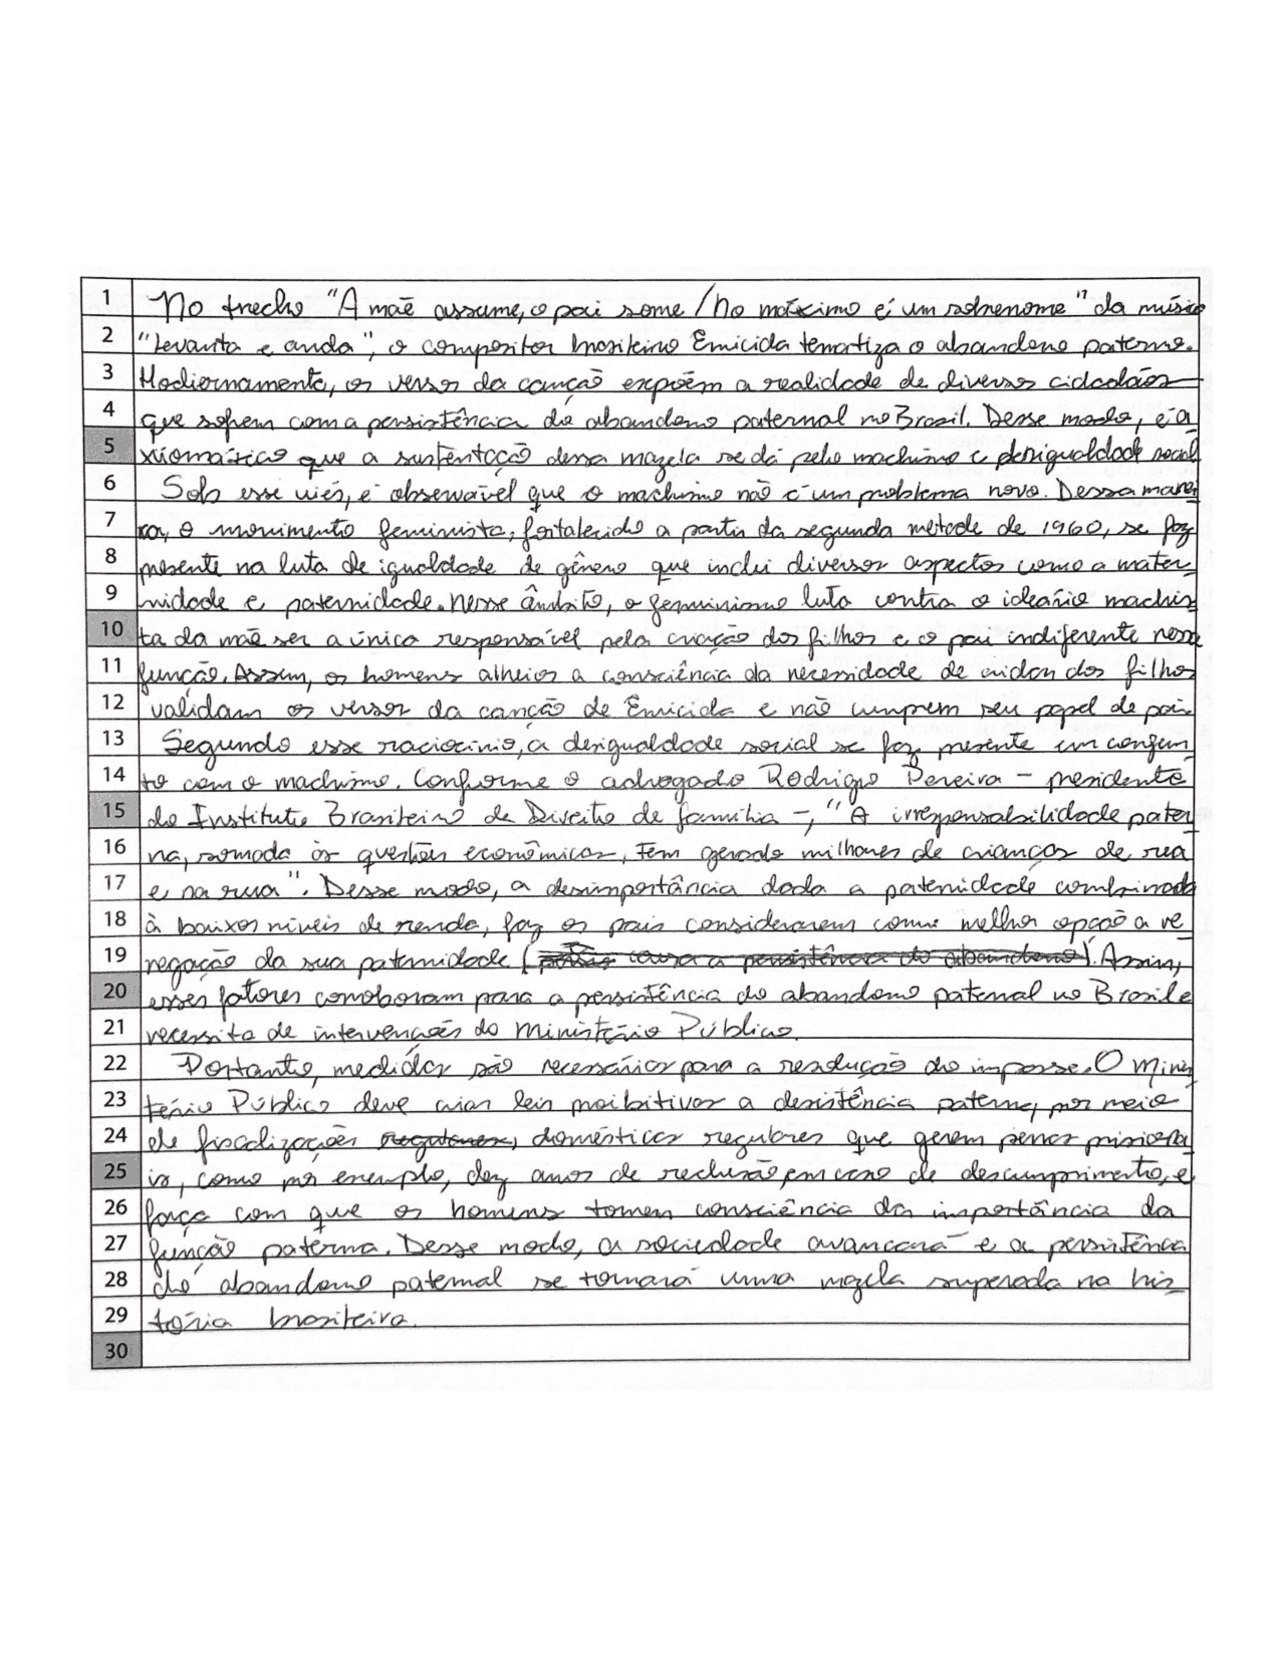 1 No trecho "A mãe assume, o pai some / No máximo é um sobrenome" da músic
2 "Levanta e anda", o compositor brasileiro Emicida tematiza o abandono paterno.
3 Hodiernamente, os versos da canção expõem a realidade de diversos cidadãos
4 que sofrem com a persistência do abandono paternal no Brasil. Desse modo, é a
5 xiomático que a sustentação dessa mazela se dá pelo machismo e desigualdade social
6 Sob esse viés, é observável que o machismo não é um problema novo. Dessa manei
7 ra, o movimento feminista, fortalecido a partir da segunda metade de 1960, se faz
8 presente na luta de igualdade de gênero que inclui diversos aspectos como a mater-
9 nidade e paternidade. Nesse âmbito, o feminismo luta contra o ideário machis
10 ta da mãe ser a única responsável pela criação dos filhos e o pai indiferente nessa
11 função. Assim, os homens alheios a consciência da necessidade de cuidar dos filhos
12 validam os versos da canção de Emicida e não cumprem seu papel de pai.
13 Segundo esse raciocínio, a desigualdade social se faz presente em conjun
14 to com o machismo. Conforme o advogado Rodrigo Pereira - presidente
15 do Instituto Brasileiro de Direito de família -, "A irresponsabilidade pater
16 na, somada às questões econômicas, tem gerado milhares de crianças de rua
17 e na rua". Desse modo, a desimportância dada a paternidade combinada
18 à baixos níveis de renda, faz os pais considerarem como melhor opção a re
19 negação da sua paternidade ( causa a persistência do abandono). Assim,
20 esses fatores corroboram para a persistência do abandono paternal no Brasil e
21 necessita de intervenções do Ministério Público.
22 Portanto, medidas são necessárias para a resolução do impasse. O Minis
23 tério Público deve criar leis proibitivas a desistência paterna, por meio
24 de fiscalizações regulares, domésticas regulares que gerem penas prisiona
25 is, como por exemplo, dez anos de reclusão, em caso de descumprimento, e
26 faça com que os homens tomem consciência da importância da
27 função paterna. Desse modo, a sociedade avançará e a persistência
28 do abandono paternal se tornará uma mazela superada na his
29 tória brasileira.
30